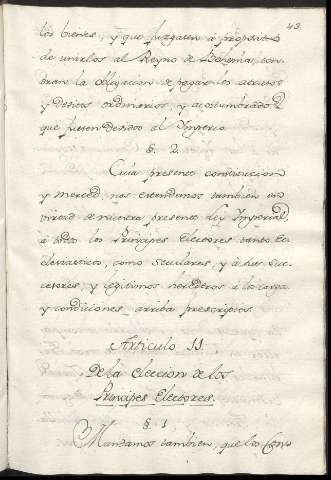 43.
los bienes, y que juzguen à proposito
de unirlos al Reyno de Bohemia, con-
la obligacion de pagar los
y acostumbrados
que fuesen devidos al Imperio.
§. 2.
Cuia presente constitucion
y merced, nos estendemos tambien en
virtud de nuestra presente Ley Imperial
à todos los Principes Electores tanto Ec-
clesiasticos, como Seculares, y à sus suc-
cesores, y legitimos herederos à la carga
y condiciones arriba prescriptas.
Articulo 11.
De la eleccion de los
Principes Electores.
§. 1.
Mandamos tambien, que los Con-